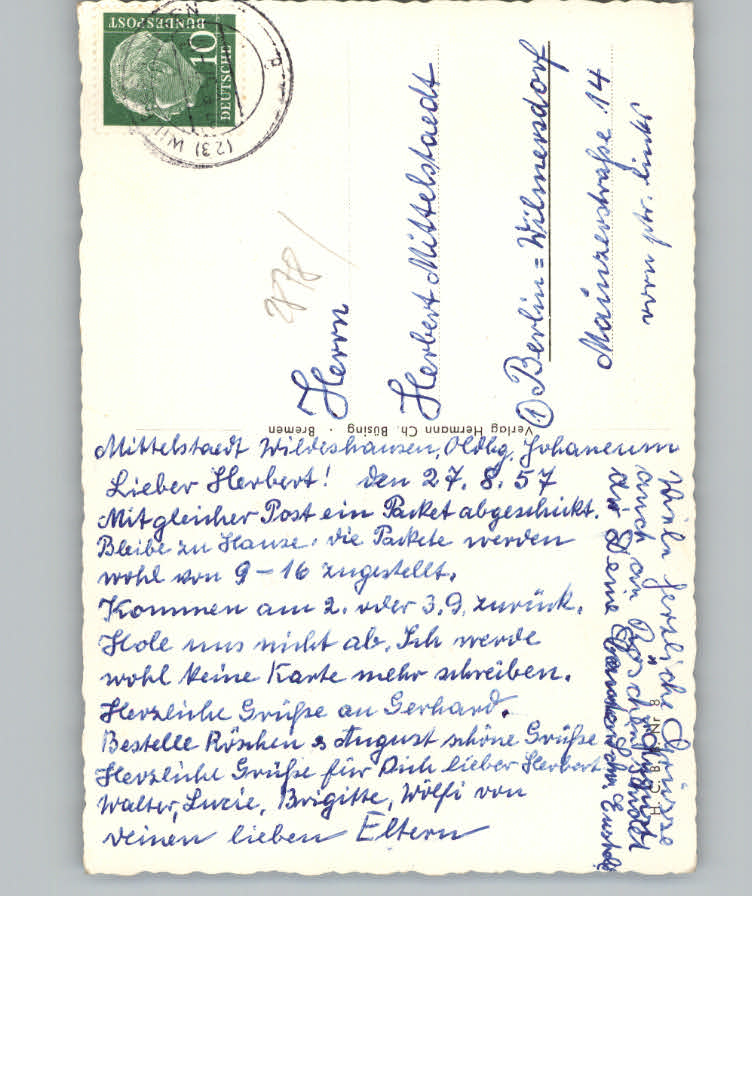 Mittelstaedt Wildeshausen, Oldbg. Johaneum
Lieber Herbert! den 27. 8. 57
Mit gleicher Post ein Packet abgeschickt.
Bleibe zu Hause, die Packete werden
wohl von 9-16 zugestellt.
Kommen am 2. oder 3.9. zurück.
Hole uns nicht ab. Ich werde
wohl keine Karte mehr schreiben.
Herzliche Grüße an Gerhard.
Bestelle Röschen & August schöne Grüße
Herzliche Grüße für Dich lieber Herbert
Walter, Luzie, Brigitte, Wölfi von
deinen lieben Eltern
Viele herzliche Grüsse
auch an Röschen
dir Deine
H. C. B. B. Nr 8
Verlag Hermann Ch. Büsing · Bremen
Herrn
Herbert Mittelstaedt
① Berlin=Wilmersdorf
Mainzerstraße 14
vorn ptr. links
878/
DEUTSCHE
BUNDESPOST
10
(23)